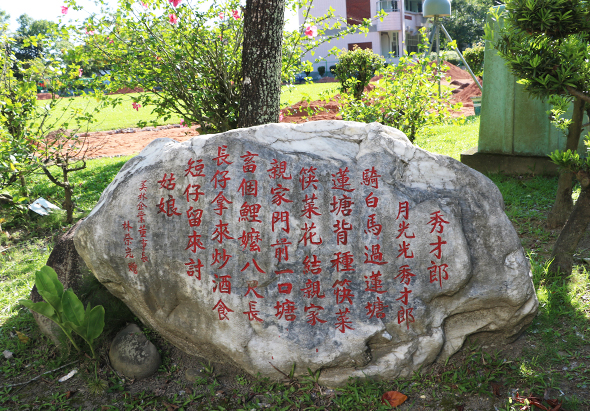 秀才郎
月光光秀才郎
騎白馬過蓮塘
蓮塘背種筷菜
筷菜花結親家
親家門前一口塘
畜個鯉嬤八尺長
長仔拿來炒酒食
短仔留來討
姑娘